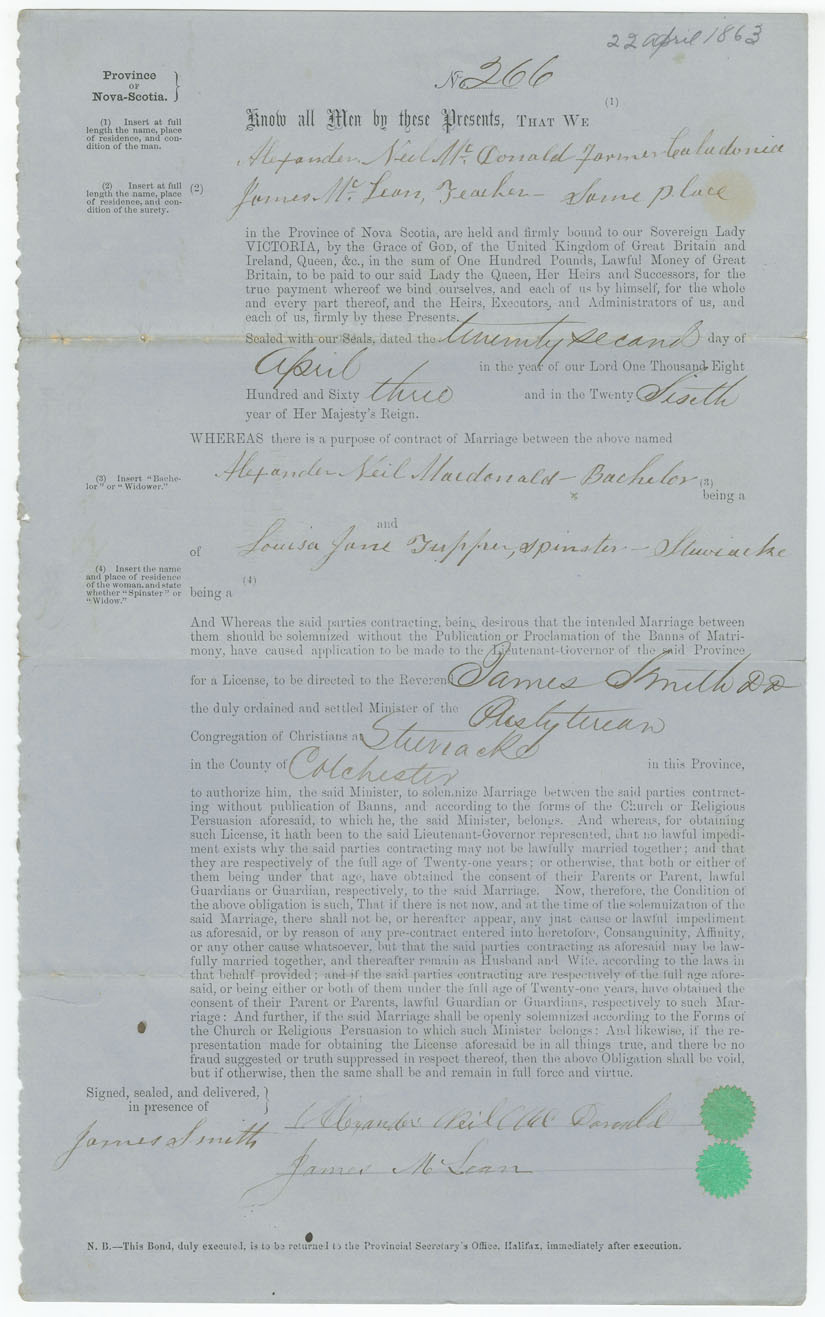 22 April 1863
Province
OF
Nova-Scotia.
No 266
(1)
Know all Men by these Presents, THAT WE
(1) Insert at full
length the name, place
of residence, and con-
dition of the man.
Alexander Neil Mc. Donald Farmer Caladonia
(2) Insert at full
length the name, place
of residence, and con-
dition of the surety.
(2) James Mc. Lean, Teacher - Same place
in the Province of Nova Scotia, are held and firmly bound to our Sovereign Lady
VICTORIA, by the Grace of GOD, of the United Kingdom of Great Britain and
Ireland, Queen, &c., in the sum of One Hundred Pounds, Lawful Money of Great
Britain, to be paid to our said Lady the Queen, Her Heirs and Successors, for the
true payment whereof we bind ourselves, and each of us by himself, for the whole
and every part thereof, and the Heirs, Executors, and Administrators of us, and
each of us, firmly by these Presents.
Sealed with our Seals, dated the twenty second day of
April in the year of our Lord One Thousand Eight
Hundred and Sixty three and in the Twenty Sixth
year of Her Majesty's Reign.
WHEREAS there is a purpose of contract of Marriage between the above named
(3) Insert "Bache-
lor" or "Widower."
Alexander Neil Macdonald - Bachelor (3)
x being a
and
of Louisa Jane Tupper, spinster - Stewiacke
(4) Insert the name
and place of residence
of the woman, and state
whether "Spinster" or
"Widow."
(4)
being a
And Whereas the said parties contracting, being desirous that the intended Marriage between
them should be solemnized without the Publication or Proclamation of the Banns of Matri-
mony, have caused application to be made to the Lieutenant-Governor of the said Province
for a License, to be directed to the Reverend James Smith DD
the duly ordained and settled Minister of the Presbyterean
Congregation of Christians at Stewiacke
in the County of Colchester in this Province,
to authorize him, the said Minister, to solemnize Marriage between the said parties contract-
ing without publication of Banns, and according to the forms of the Church or Religious
Persuasion aforesaid, to which he, the said Minister, belongs. And whereas, for obtaining
such License, it hath been to the said Lieutenant-Governor represented, that no lawful impedi-
ment exists why the said parties contracting may not be lawfully married together; and that
they are respectively of the full age of Twenty-one years; or otherwise, that both or either of
them being under that age, have obtained the consent of their Parents or Parent, lawful
Guardians or Guardian, respectively, to the said Marriage. Now, therefore, the Condition of
the above obligation is such, That if there is not now, and at the time of the solemnization of the
said Marriage, there shall not be, or hereafter appear, any just cause or lawful impediment
as aforesaid, or by reason of any pre-contract entered into heretofore, Consanguinity, Affinity,
or any other cause whatsoever, but that the said parties contracting as aforesaid may be law-
fully married together, and thereafter remain as Husband and Wife, according to the laws in
that behalf provided; and if the said parties contracting are respectively of the full age afore-
said, or being either or both of them under the full age of Twenty-one years, have obtained the
consent of their Parent or Parents, lawful Guardian or Guardians, respectively to such Mar-
riage: And further, if the said Marriage shall be openly solemnized according to the Forms of
the Church or Religious Persuasion to which such Minister belongs: And likewise, if the re-
presentation made for obtaining the License aforesaid be in all things true, and there be no
fraud suggested or truth suppressed in respect thereof, then the above Obligation shall be void,
but if otherwise, then the same shall be and remain in full force and virtue.
Signed, sealed, and delivered,
in presence of
James Smith
Alexander Neil Mc Donald
James McLean
N. B.—This Bond, duly executed, is to be returned to the Provincial Secretary's Office, Halifax, immediately after execution.